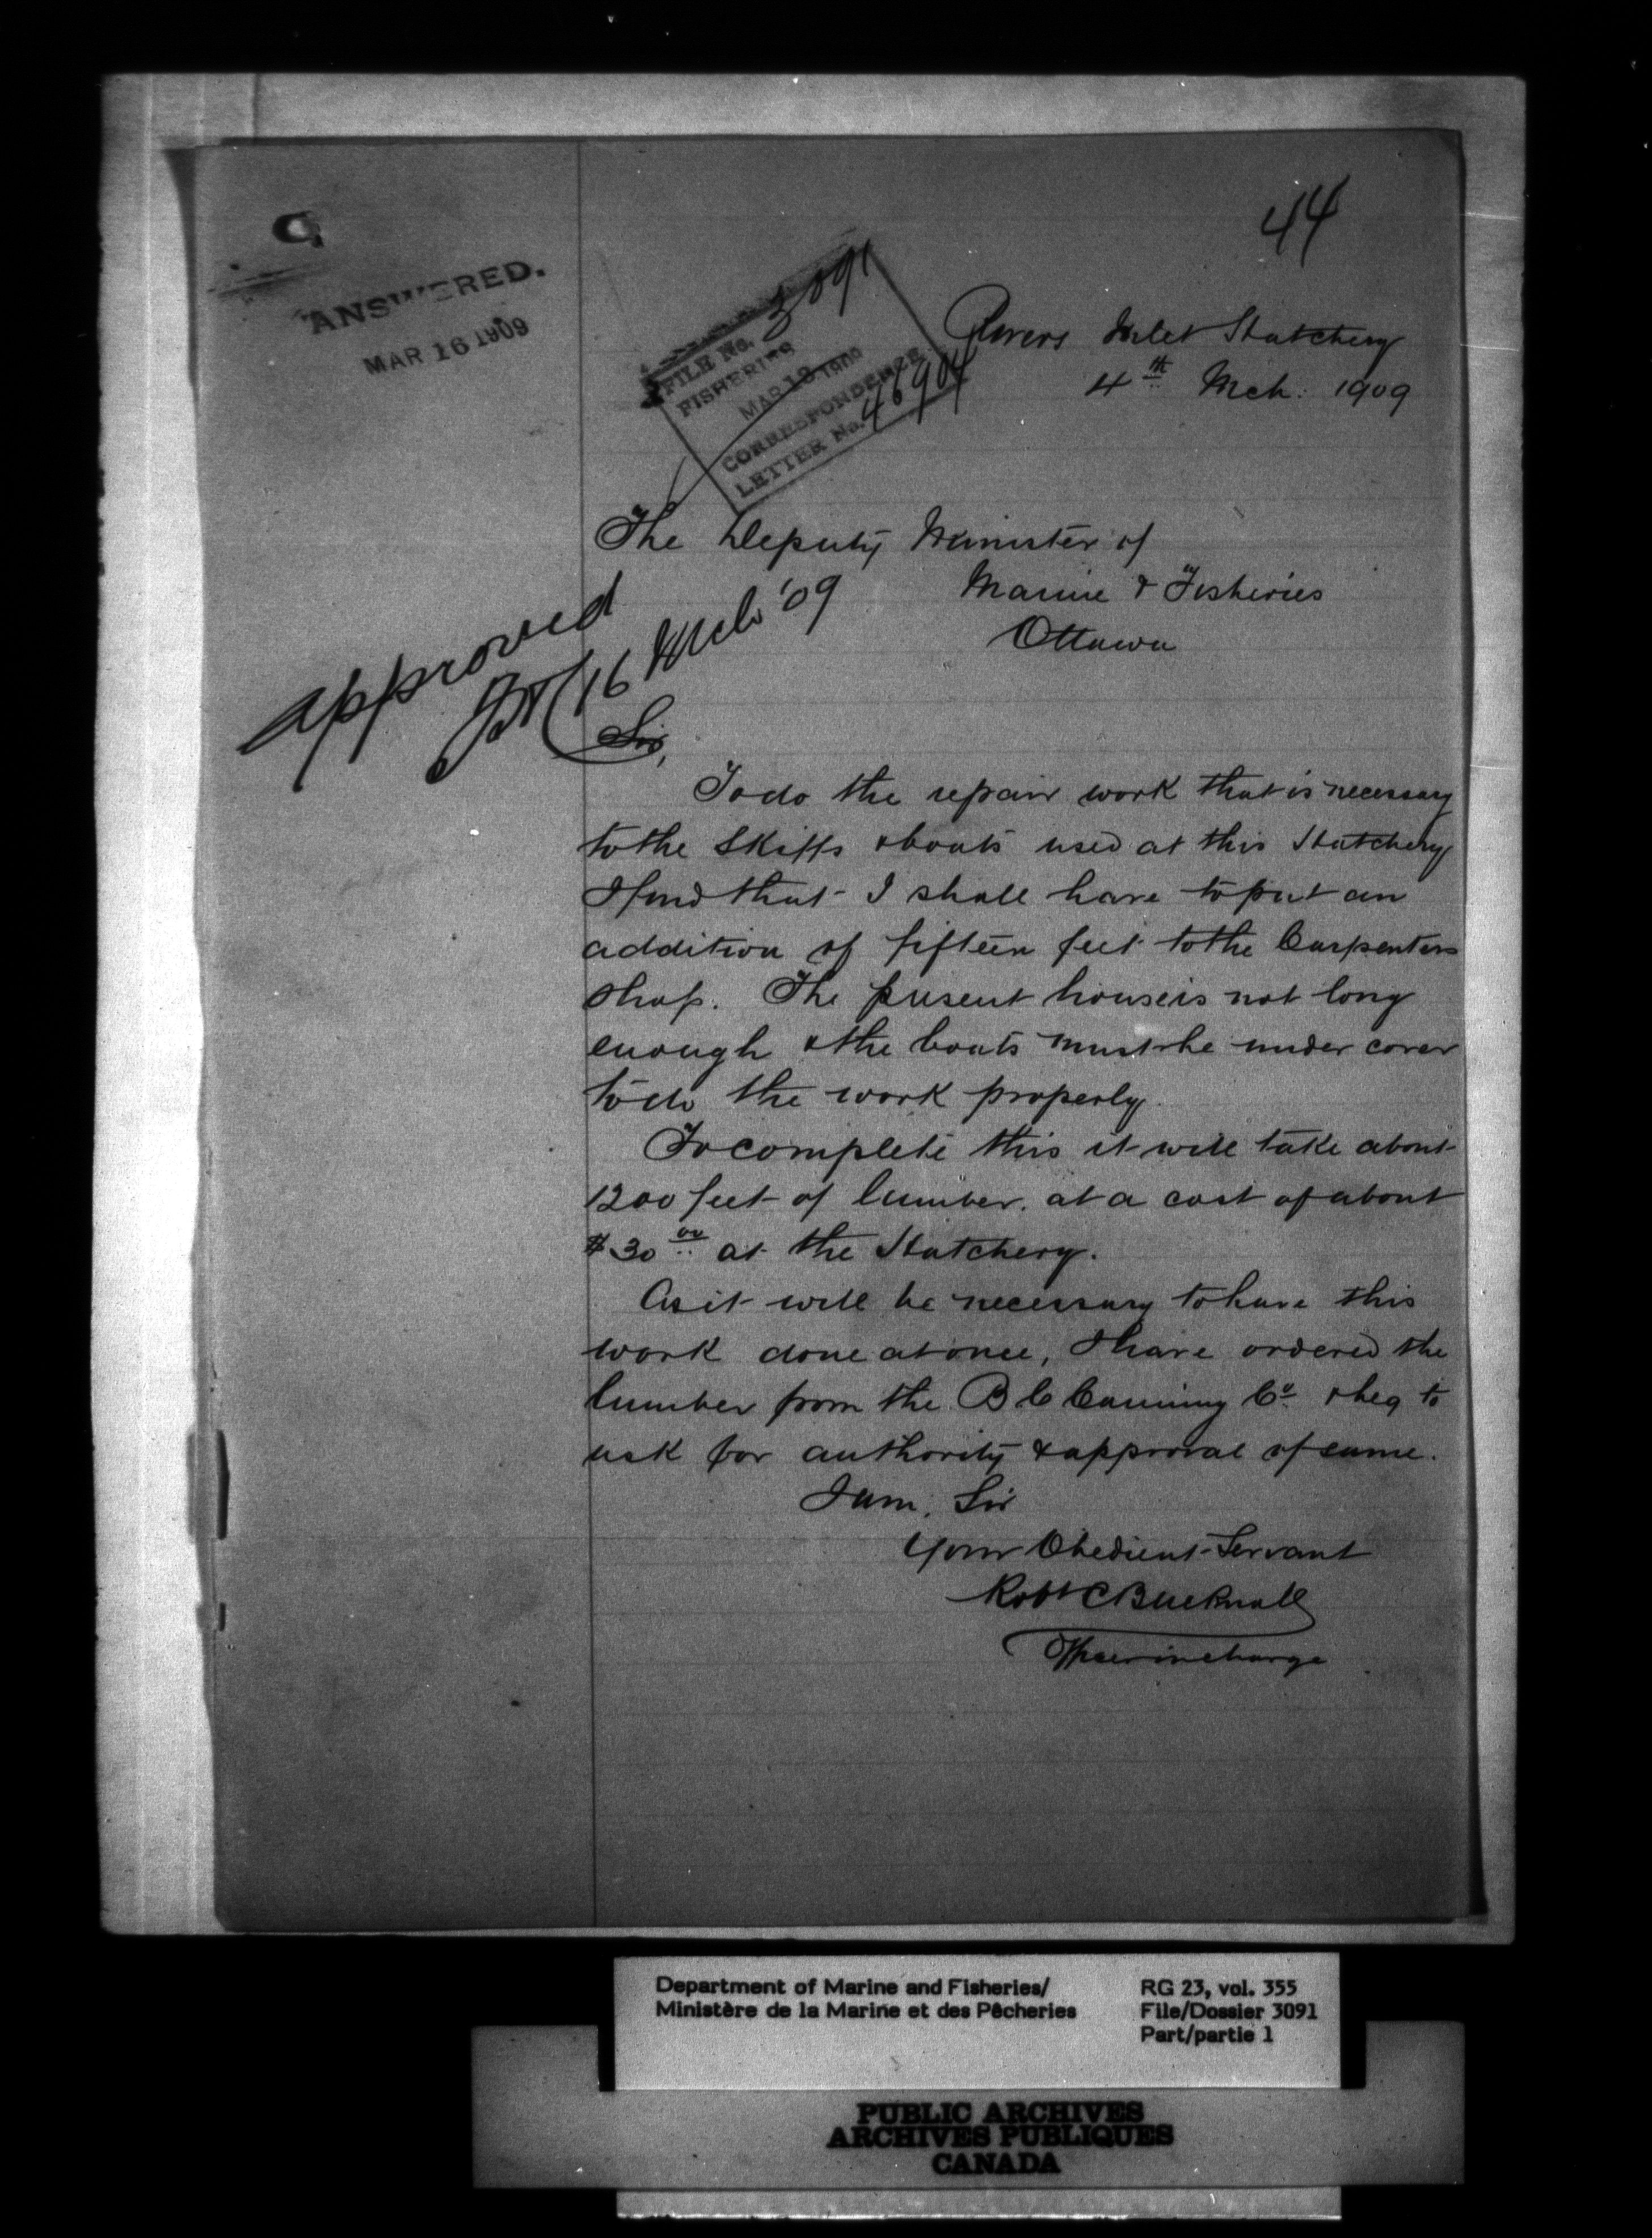 44
ANSWERED.
MAR 16 1909
FILE No. 3091
FISHERIES
MAR 13 1909
CORRESPONDENCE
LETTER No. 46904
Rivers Inlet Hatchery
4th Mch. 1909
The Deputy Minister of
Marine & Fisheries
Ottawa
approved
16 Mch '09
Sir,
To do the repair work that is necessary
to the skiffs & boats used at this Hatchery
I find that I shall have to put an
addition of fifteen feet to the Carpenters
shop. The present house is not long
enough & the boats must be under cover
to do the work properly.
To complete this it will take about
1200 feet of lumber. at a cost of about
$30.00 at the Hatchery.
As it will be necessary to have this
work done at once, I have ordered the
lumber from the B C Canning Co. & beg to
ask for authority & approval of same.
I am, Sir
Your Obedient Servant
Robt C Bucknall
Officer in charge
Department of Marine and Fisheries/
Ministère de la Marine et des Pêcheries
RG 23, vol. 355
File/Dossier 3091
Part/partie 1
PUBLIC ARCHIVES
ARCHIVES PUBLIQUES
CANADA